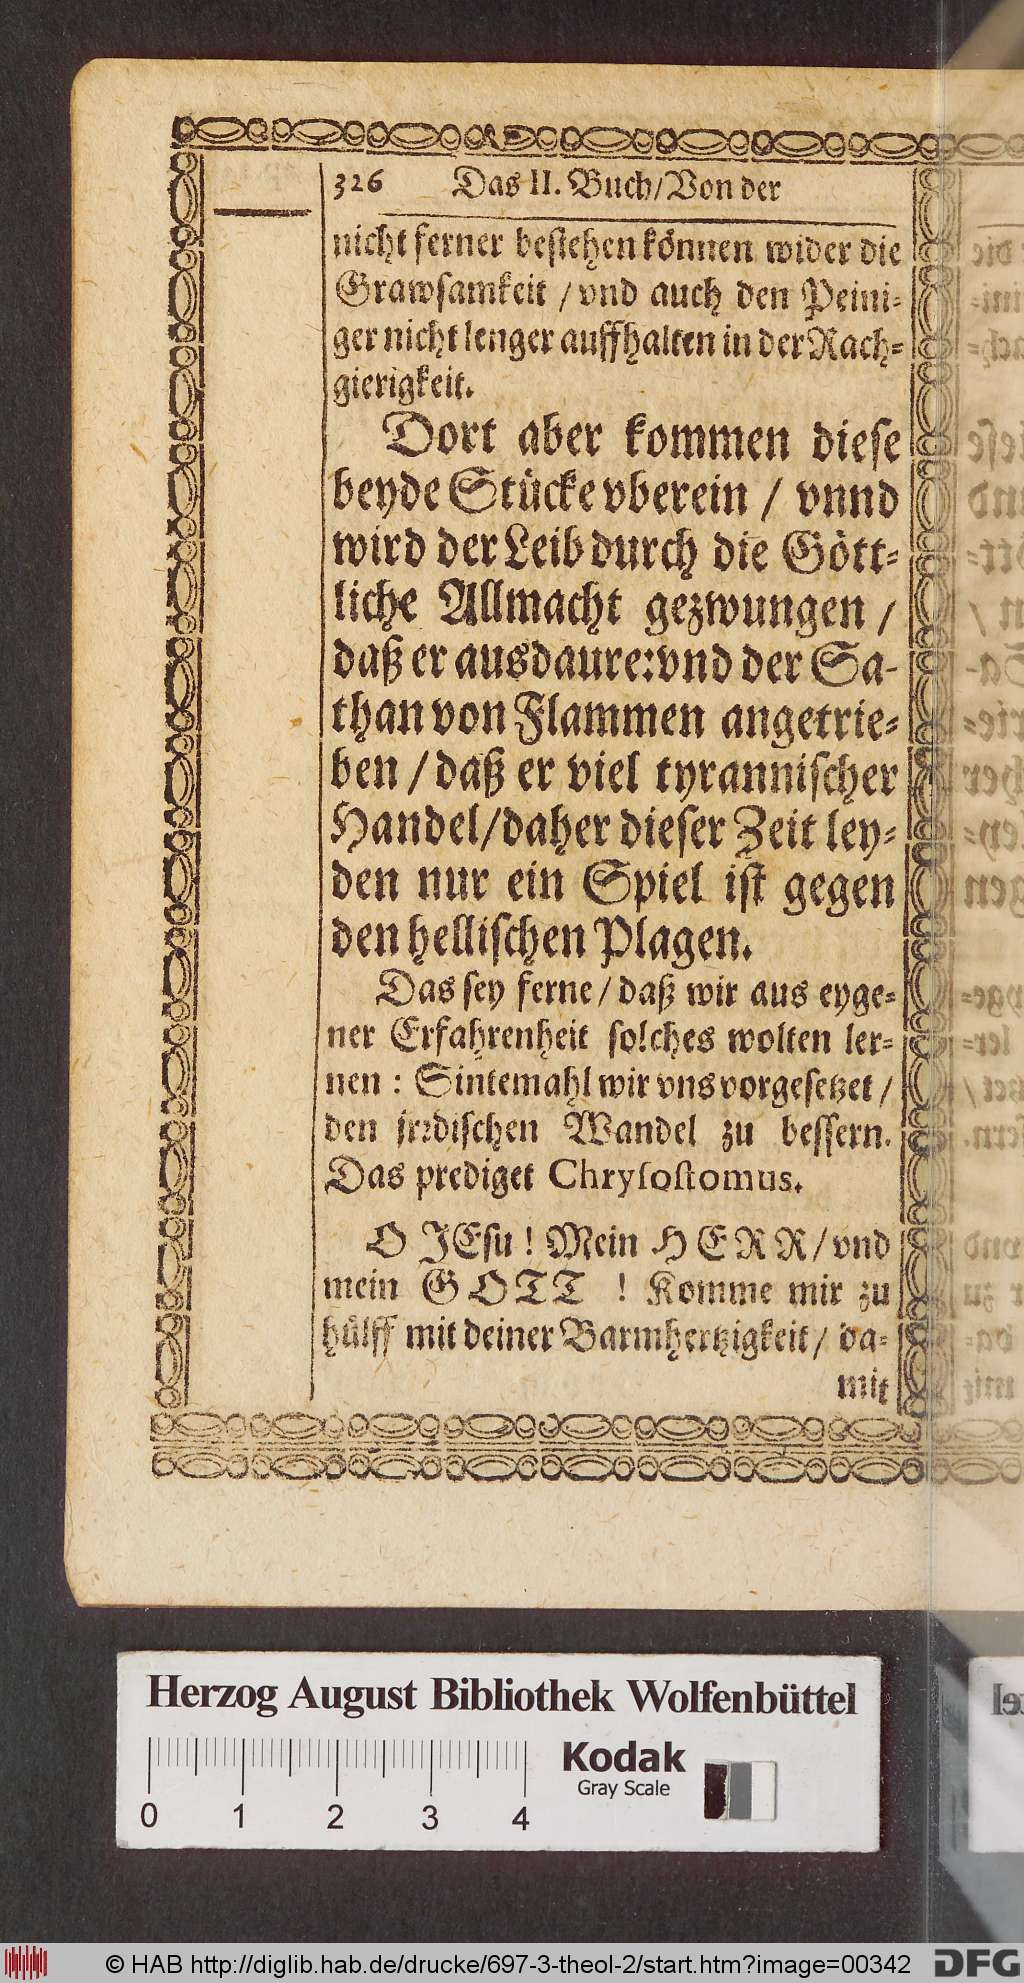 326 Das II. Buch/Von der
nicht ferner bestehen können wider die
Grawsamkeit / vnd auch den Peini-
ger nicht lenger auffhalten in der Rach-
gierigkeit.
Dort aber kommen diese
beyde Stücke vberein / vnnd
wird der Leib durch die Gött-
liche Allmacht gezwungen /
daß er ausdaure: vnd der Sa-
than von Flammen angetrie-
ben / daß er viel tyrannischer
Handel/daher dieser Zeit ley-
den nur ein Spiel ist gegen
den hellischen Plagen.
Das sey ferne / daß wir aus eyge-
ner Erfahrenheit solches wolten ler-
nen : Sintemahl wir vns vorgesetzet /
den jrrdischen Wandel zu bessern.
Das prediget Chrysostomus.
O JEsu ! Mein HERR/ vnd
mein GOTT ! Komme mir zu
hülff mit deiner Barmhertzigkeit / da-
mit
Herzog August Bibliothek Wolfenbüttel
Kodak
Gray Scale
0 1 2 3 4
© HAB http://diglib.hab.de/drucke/697-3-theol-2/start.htm?image=00342
DFG